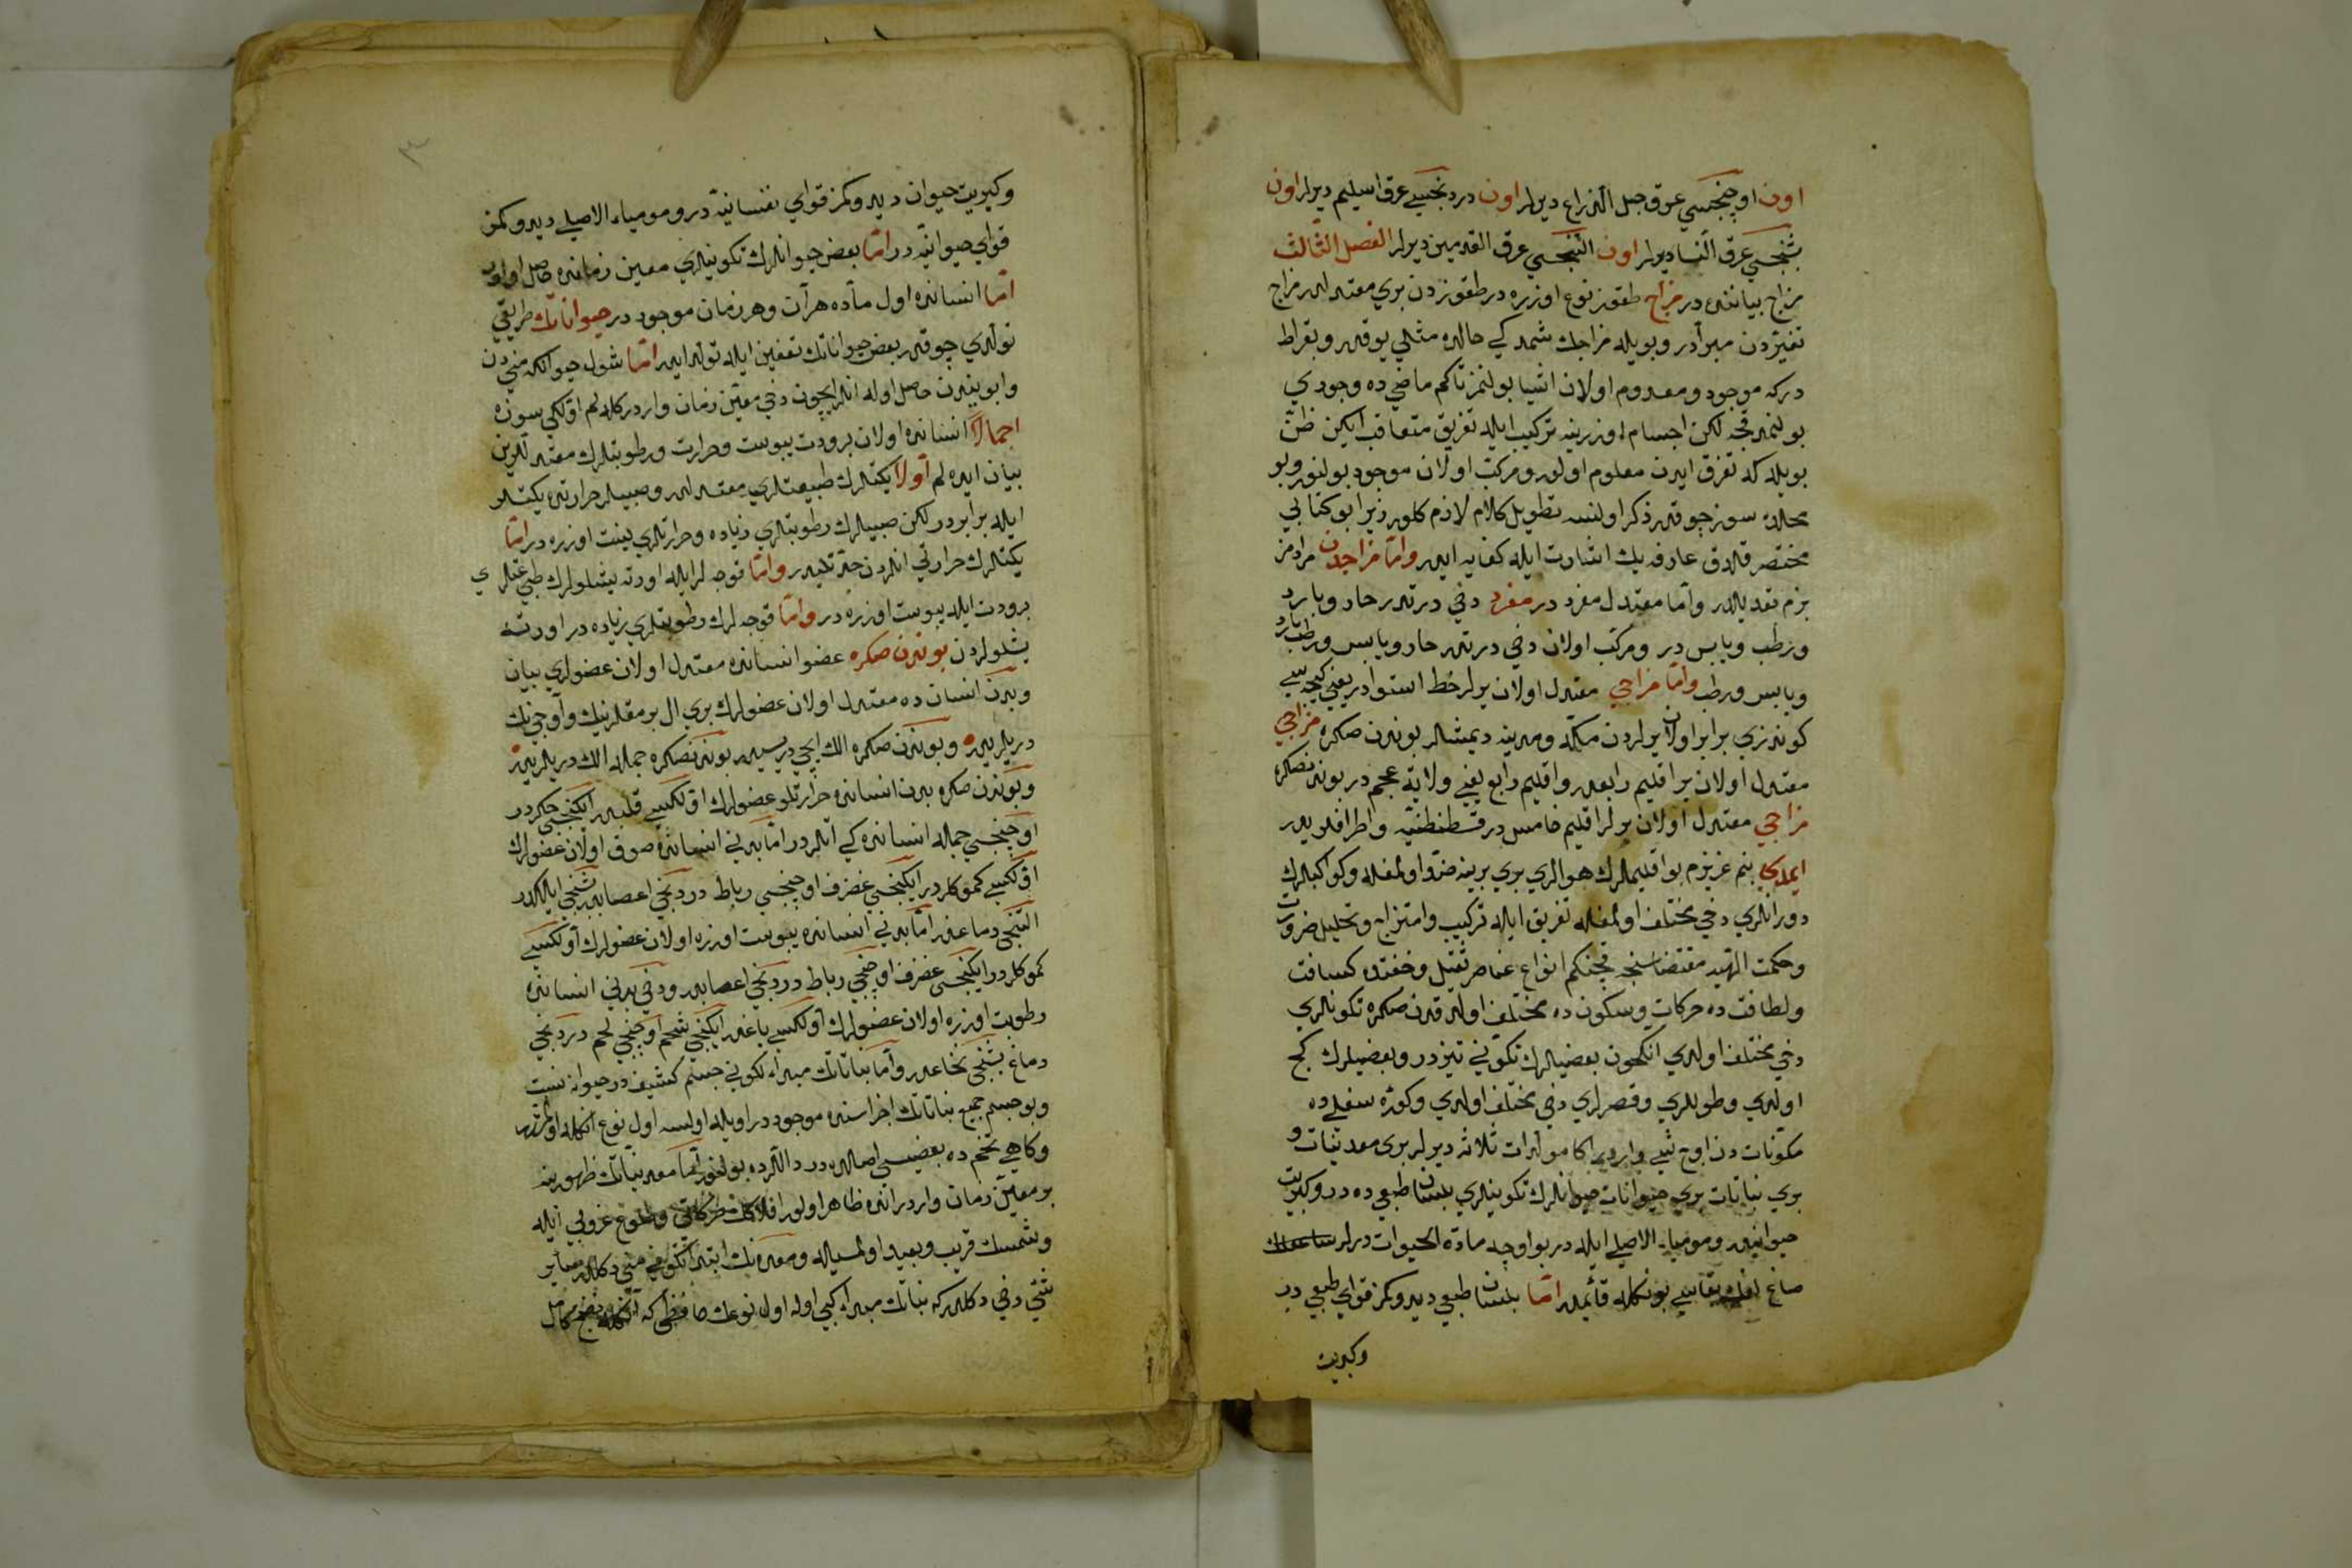 اون اوچنجسي عرق حبل الذراع ديرلر اون دردنجيسي عرق اسيلم ديرلر اون
بشنجسي عرق النسا ديرلر اون التنجسي عرق القدمين ديرلر الفصل الثالث
مزاج بياننده در مزاج طقوز نوع اوزره در طقوزدن بري معتدلدر مزاج
تغيردن مبرادر و بويله مزاجك شمديكي حالده مثلي يوقدر وبقراط
دركه موجود ومعدوم اولان اشيا بولنمز تاكم ماضي ده وجودي
بولنميه قچه لكن اجسام اوزرينه تركيب ايله تفريق متعاقب ايكن ظن
بويله كه تفرق ايدن معلوم اولور ومركب اولان موجود بولنور وبو
محلده سوز چوقدر ذكر اولنسه تطويل كلام لازم كلور زيرا بو كتابي
مختصر قلدق عارفه بك اشارت ايله كفايه ايدر واما مزاجدن مرادمز
بزم تعديلدر واما معتدل مفرد در مفرد دخي درتدر حار وبارد
ورطب ويابس در ومركب اولان دخي درتدر حار ويابس ورطب بارد
ويابس ورطب واما مزاجي معتدل اولان يرلر خط استوادر يعني كيجه سي
كوندزي برابر اولان يرلردن مكه ومدينه ديمشلر بوندن صكره مزاجي
معتدل اولان ير اقليم رابعدر واقليم رابع يعني ولاية عجم در بوندنصكره
مزاجي معتدل اولان يرلر اقليم خامس در قسطنطنيه واطرافلريدر
ايمدي بنم عزيزم بو اقليملرك هوالري بري برينه ضد اولمغله وكواكبلرك
دورانلري دخي مختلف اولمغله تفريق ايله تركيب وامتزاج وتحليل ضرورت
وحكمت الهيه مقتضاسنجه قچنكم انواع عناصر ثقيل وخفتده كسافت
ولطافت ده حركات وسكون ده مختلف اولدقدن صكره تكونلري
دخي مختلف اولدي انكچون بعضيلرك تكوني تيزدر وبعضيلرك كج
اولدي وطوللري وقصرلري دخي مختلف اولدي وكوره سفلي ده
مكونات دن اوچ شي واردر اكا مولدات ثلاثه ديرلر بري معدنيات و
بري نباتات بري حيوانات حيوانلرك تكوينلري بلسان طبعي ده در وكبريت
حيوانيدر وموميا الاصلي ايله در بو اوچه مادة الحيوات درلر
صاغ بقاسي بونكله قائمدر اما بلسان طبعي ديدوكمز قواي طبعي در
وكبريت
وكبريت حيوان ديدوكمز قواي نفسانيه در ومومياء الاصلي ديدوكمز
قواي حيوانيه در اما بعض حيوانلرك تكوينلري معين زمانده حاصل اولور
اما انسانده اول ماده هرآن وهر زمان موجود در حيواناتك طريقي
تولدي چوقدر بعض حيواناتك تعفين ايله تولد ايدر اما شول حيوانكه مني دن
وابويندن حاصل اوله انلر ايچون دخي معين زمان واردر كله لم اولكي سوزه
اجمالا انسانده اولان برودت يبوست وحرارت ورطوبتلرك معتدللرين
بيان ايده لم اولا يكتلرك طبيعتلري معتدلدر وصبيلر حرارتده يكتلر
ايله برابردر لكن صبيلرك رطوبتلري زياده وحرارتلري لينت اوزره در اما
يكتلرك حرارتي انلردن حدتليدر واما قوجه لر ايله اورته ياشلولرك طبيعتلري
برودت ايله يبوست اوزره در واما قوجه لرك رطوبتلري زياده در اورته
يشلولردن بوندن صكره عضو انسانده معتدل اولان عضولري بيان
وبدن انسان ده معتدل اولان عضولرك بري ال برمقلرينك واوجنك
دريلريدر وبوندن صكره الك ايچي دريسيدر بوندنصكره جمله الك دريلريدر
وبوندن صكره بدن انسانده حرارتلو عضولرك اولكيسي قلبدر ايكنجي جكردر
اوچنجسي جمله انسانده كي اتلردر اما بدني انسانده صوق اولان عضولرك
اولكيسي كموكلردر ايكنجسي غضرف اوچنجسي رباط دردنجي اعصابدر بشنجي ايلكدر
التنجي دماغدر اما بدني انسانده يبوست اوزره اولان عضولرك اولكيسي
كموكلردر ايكنجسي غضرف اوچنجي رباط دردنجي اعصابدر ودخي بدني انسانده
رطوبت اوزره اولان عضولرك اولكيسي ياغدر ايكنجي شحم اوچنجي لحم دردنجي
دماغ بشنجي نخاعدر واما نباتاتك مبداء تكوني جسم كشيف در حيوانه نسبت
وبو جسم جميع نباتاتك اجزاسنده موجود در اويله اولسه اول نوع انكله اولمشدر
وكاهي تخم ده بعضيسي اصلده در داللرده بولنور اما معدنياتك ظهورينه
بر معين زمان واردر انده ظاهر اولور افلاكك حركاتي وطلوع غروبي ايله
وشمسك قريب وبعيد اولمسيله ومعدنك ابتدا تكوني مني دكلدر ساير
شي دخي دكلدركه نباتك مبداء كبي اوله اول نوعك حافظي كه